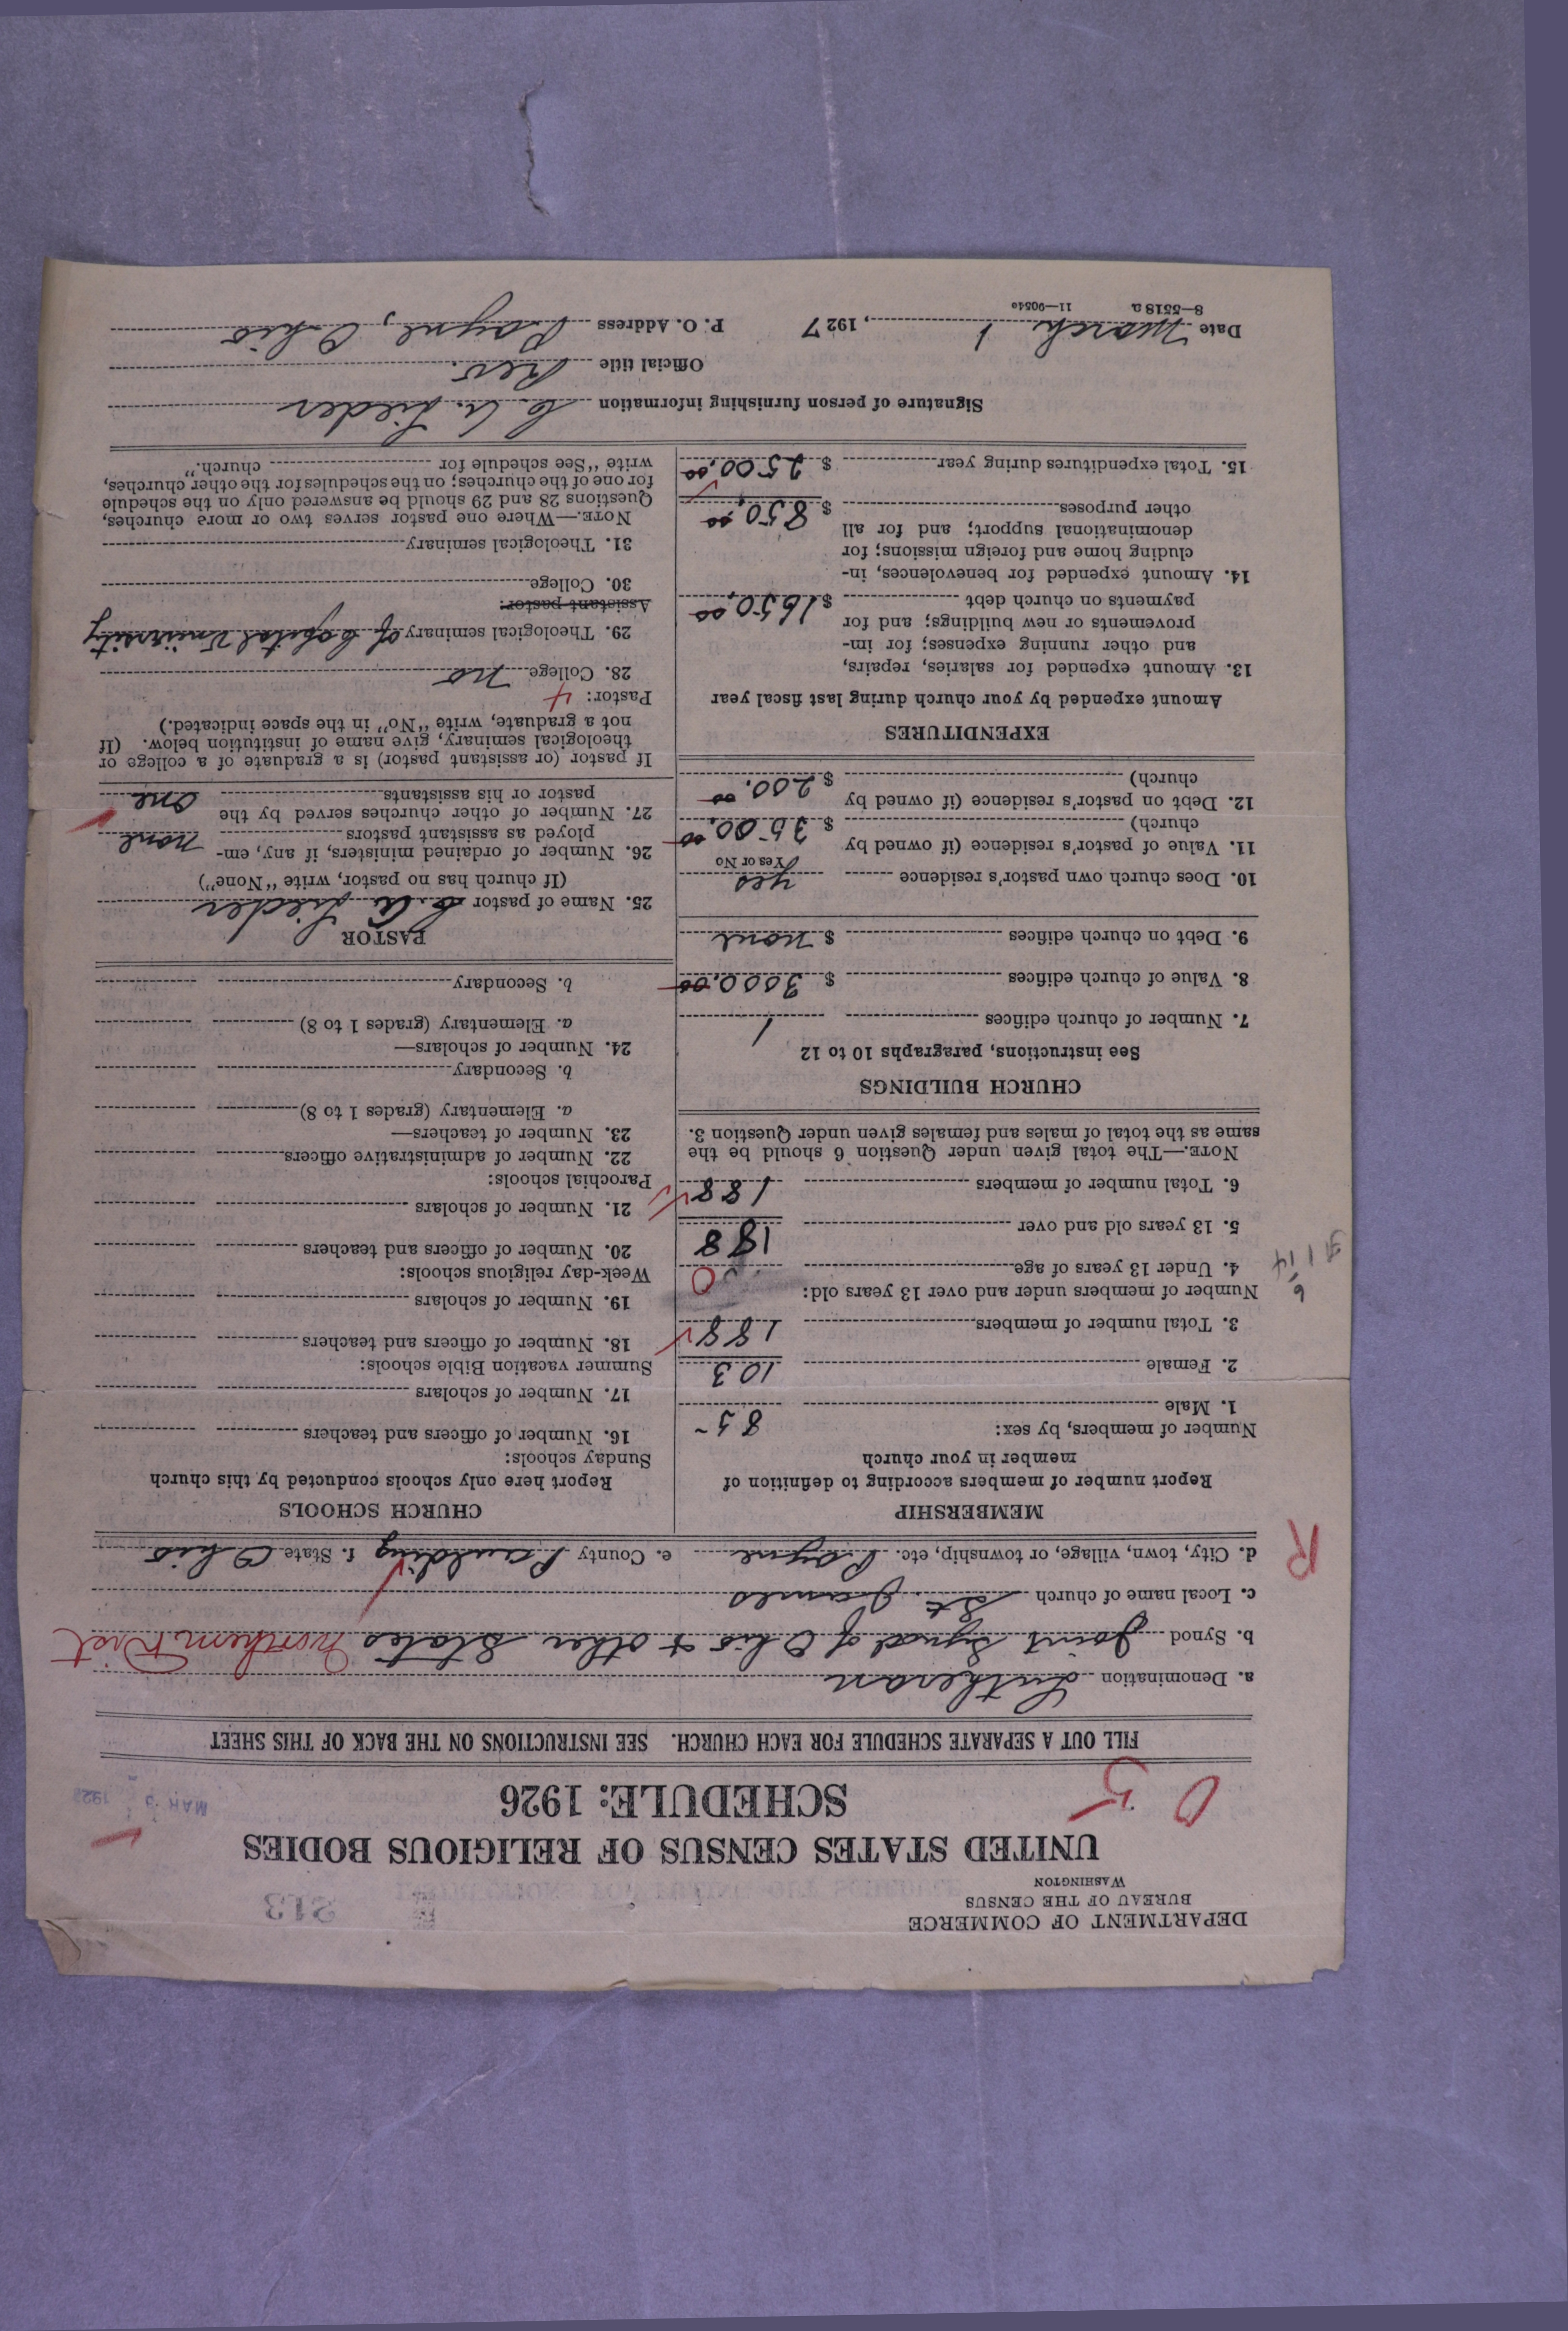 DEPARTMENT OF COMMERCE
BUREAU OF THE CENSUS
WASHINGTON
213
UNITED STATES CENSUS OF RELIGIOUS BODIES
SCHEDULE: 1926
MAR 5 192
0 5
FILL OUT A SEPARATE SCHEDULE FOR EACH CHURCH. SEE INSTRUCTIONS ON THE BACK OF THIS SHEET
a. Denomination Lutheran
b. Synod Joint Synod of Ohio & other States Northern Dist
c. Local name of church St. James
d. City, town, village, or township, etc. Payne e. County Paulding f. State Ohio
R
MEMBERSHIP
Report number of members according to definition of
member in your church
Number of members, by sex:
1. Male 85
2. Female 103
3. Total number of members 188
Number of members under and over 13 years old:
4. Under 13 years of age 0
5. 13 years old and over 188
6. Total number of members 188
NOTE.—The total given under Question 6 should be the
same as the total of males and females given under Question 3.
CHURCH BUILDINGS
See instructions, paragraphs 10 to 12
7. Number of church edifices 1
8. Value of church edifices $ 3000.00
9. Debt on church edifices $ none
10. Does church own pastor's residence yes
Yes or No
11. Value of pastor's residence (if owned by
church) $ 3500.00
12. Debt on pastor's residence (if owned by
church) $ 200.00
EXPENDITURES
Amount expended by your church during last fiscal year
13. Amount expended for salaries, repairs,
and other running expenses; for im-
provements or new buildings; and for
payments on church debt $ 1650.00
14. Amount expended for benevolences, in-
cluding home and foreign missions; for
denominational support; and for all
other purposes $ 850.00
15. Total expenditures during year $ 2500.00
CHURCH SCHOOLS
Report here only schools conducted by this church
Sunday schools:
16. Number of officers and teachers
17. Number of scholars
Summer vacation Bible schools:
18. Number of officers and teachers
19. Number of scholars
Week-day religious schools:
20. Number of officers and teachers
21. Number of scholars
Parochial schools:
22. Number of administrative officers
23. Number of teachers—
a. Elementary (grades 1 to 8)
b. Secondary
24. Number of scholars—
a. Elementary (grades 1 to 8)
b. Secondary
PASTOR
25. Name of pastor C. A. Lieder
(If church has no pastor, write "None")
26. Number of ordained ministers, if any, em-
ployed as assistant pastors none
27. Number of other churches served by the
pastor or his assistants one
If pastor (or assistant pastor) is a graduate of a college or
theological seminary, give name of institution below. (If
not a graduate, write "No" in the space indicated.)
Pastor: 4
28. College no
29. Theological seminary of Capital University
Assistant pastor:
30. College
31. Theological seminary
NOTE.—Where one pastor serves two or more churches,
Questions 28 and 29 should be answered only on the schedule
for one of the churches; on the schedules for the other churches,
write "See schedule for church."
Signature of person furnishing information C. A. Lieder
Official title Rev.
Date March 1, 1927 P. O. Address Payne, Ohio
8—5518 a 11—9054o